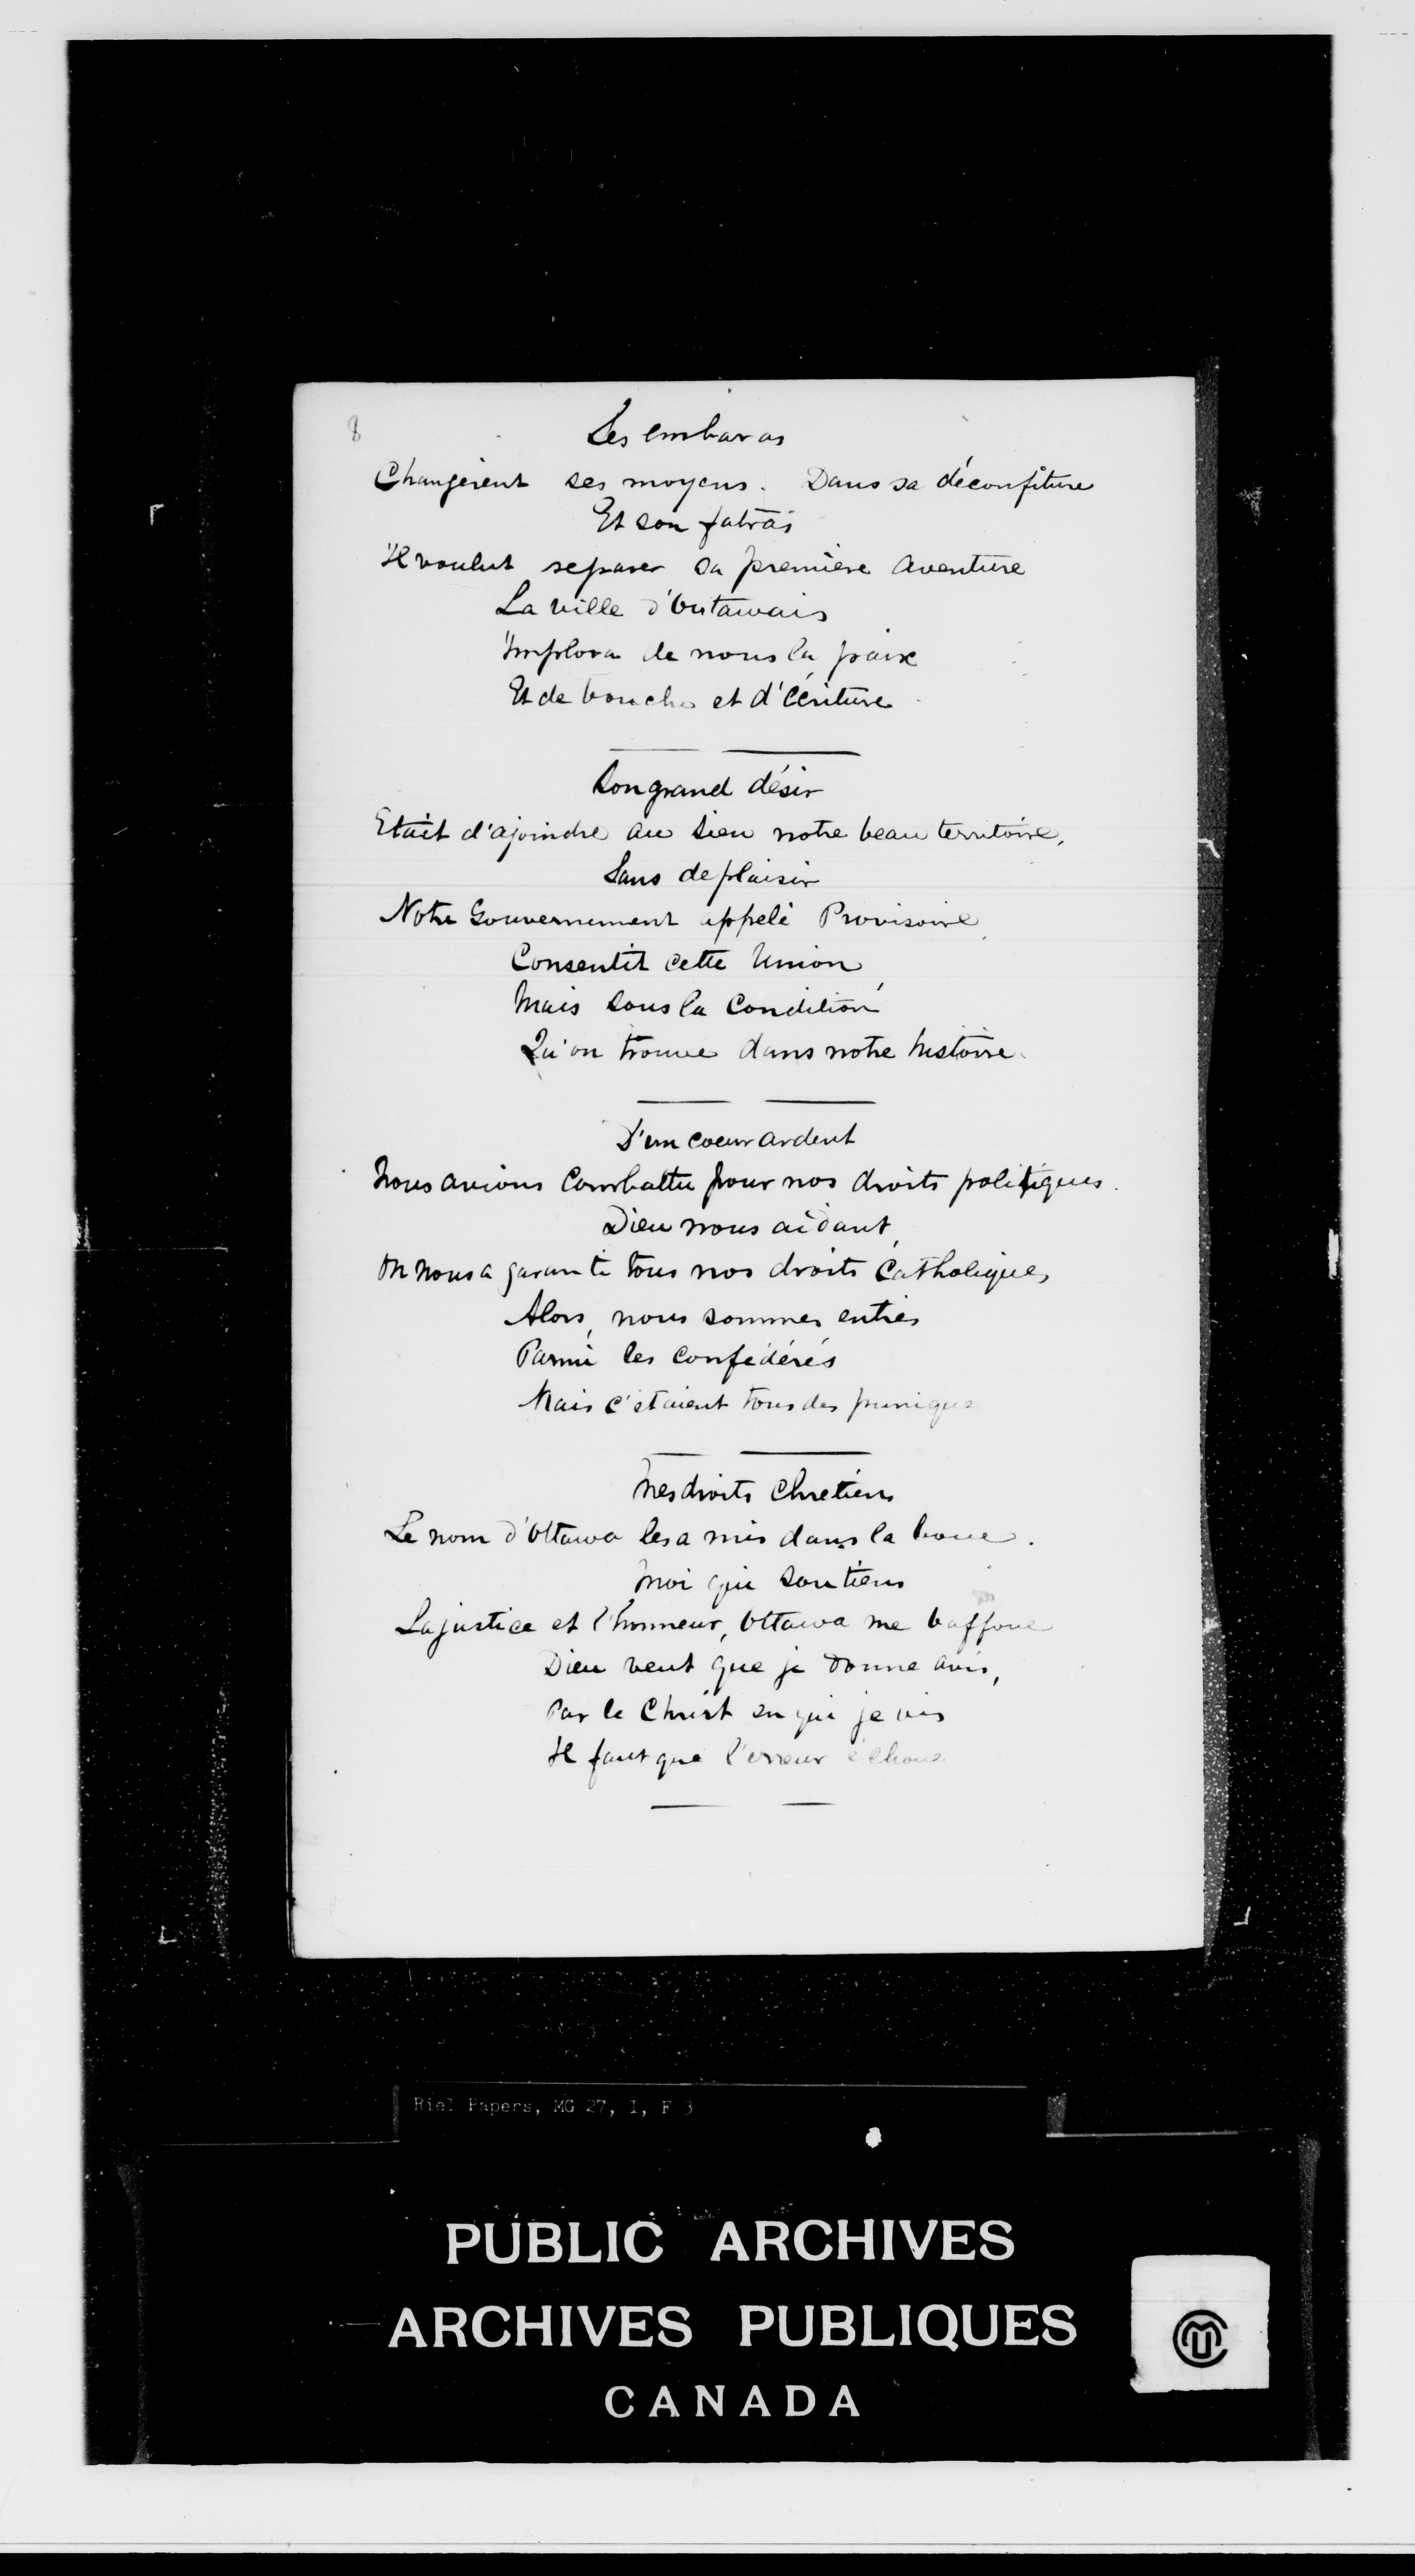 8
Les embaras
Changèrent ses moyens. Dans sa déconfiture
Et son fatras
Il voulut separer sa première aventure
La ville d'Outawais
Implora de nous la paix
Et de bouche et d'écriture
Son grand désir
Etait d'ajoindre au sien notre beau territoire,
Sans deplaisir
Notre Gouvernement appelé Provisoire,
Consentit cette Union,
Mais sous la Condition
Qu'on trouve dans notre histoire.
D'un coeur ardent
Nous avions Combattu pour nos droits politiques.
Dieu nous aidant,
On nous a garanti tous nos droits Catholiques,
Alors, nous sommes entrés
Parmi les Confédérés
Mais c'étaient tous des puniques
Mes droits Chretiens
Le nom d'Ottawa les a mis dans la boue.
Moi qui soutiens
La justice et l'honneur, Ottawa me baffoue
Dieu veut que je donne avis,
Par le Christ en qui je vis
Il faut que l'erreur échoue.
Riel Papers, MG 27, I, F 3
PUBLIC ARCHIVES
ARCHIVES PUBLIQUES
CANADA